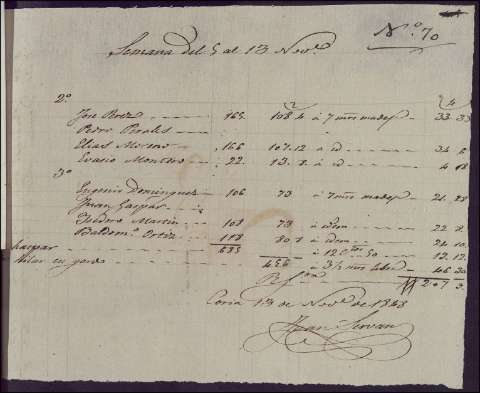 Nº 70
Semana del 5 al 13 Nov.e
2º
Jose Perez 165. 108.4 a 7 mrs madej 33. 33
Pedro Perales
Elias Moreno 166 107.12 a id 34 6
Evasio Montero 22. 13.2 a id 4 18
3º
Eugenio Dominguez 106 73 a 7 mrs madej 21. 28
Juan Gaspar
Isidoro Martin 108 73 a idem 22 8
Baldom.o Ortiz 118 80 a idem 24 10
Gaspar 685 12. 12
Hilar en gordo 456 a 3½ mrs 46 30
207
Coria 13 de Nov.e de 1848
Juan Servan